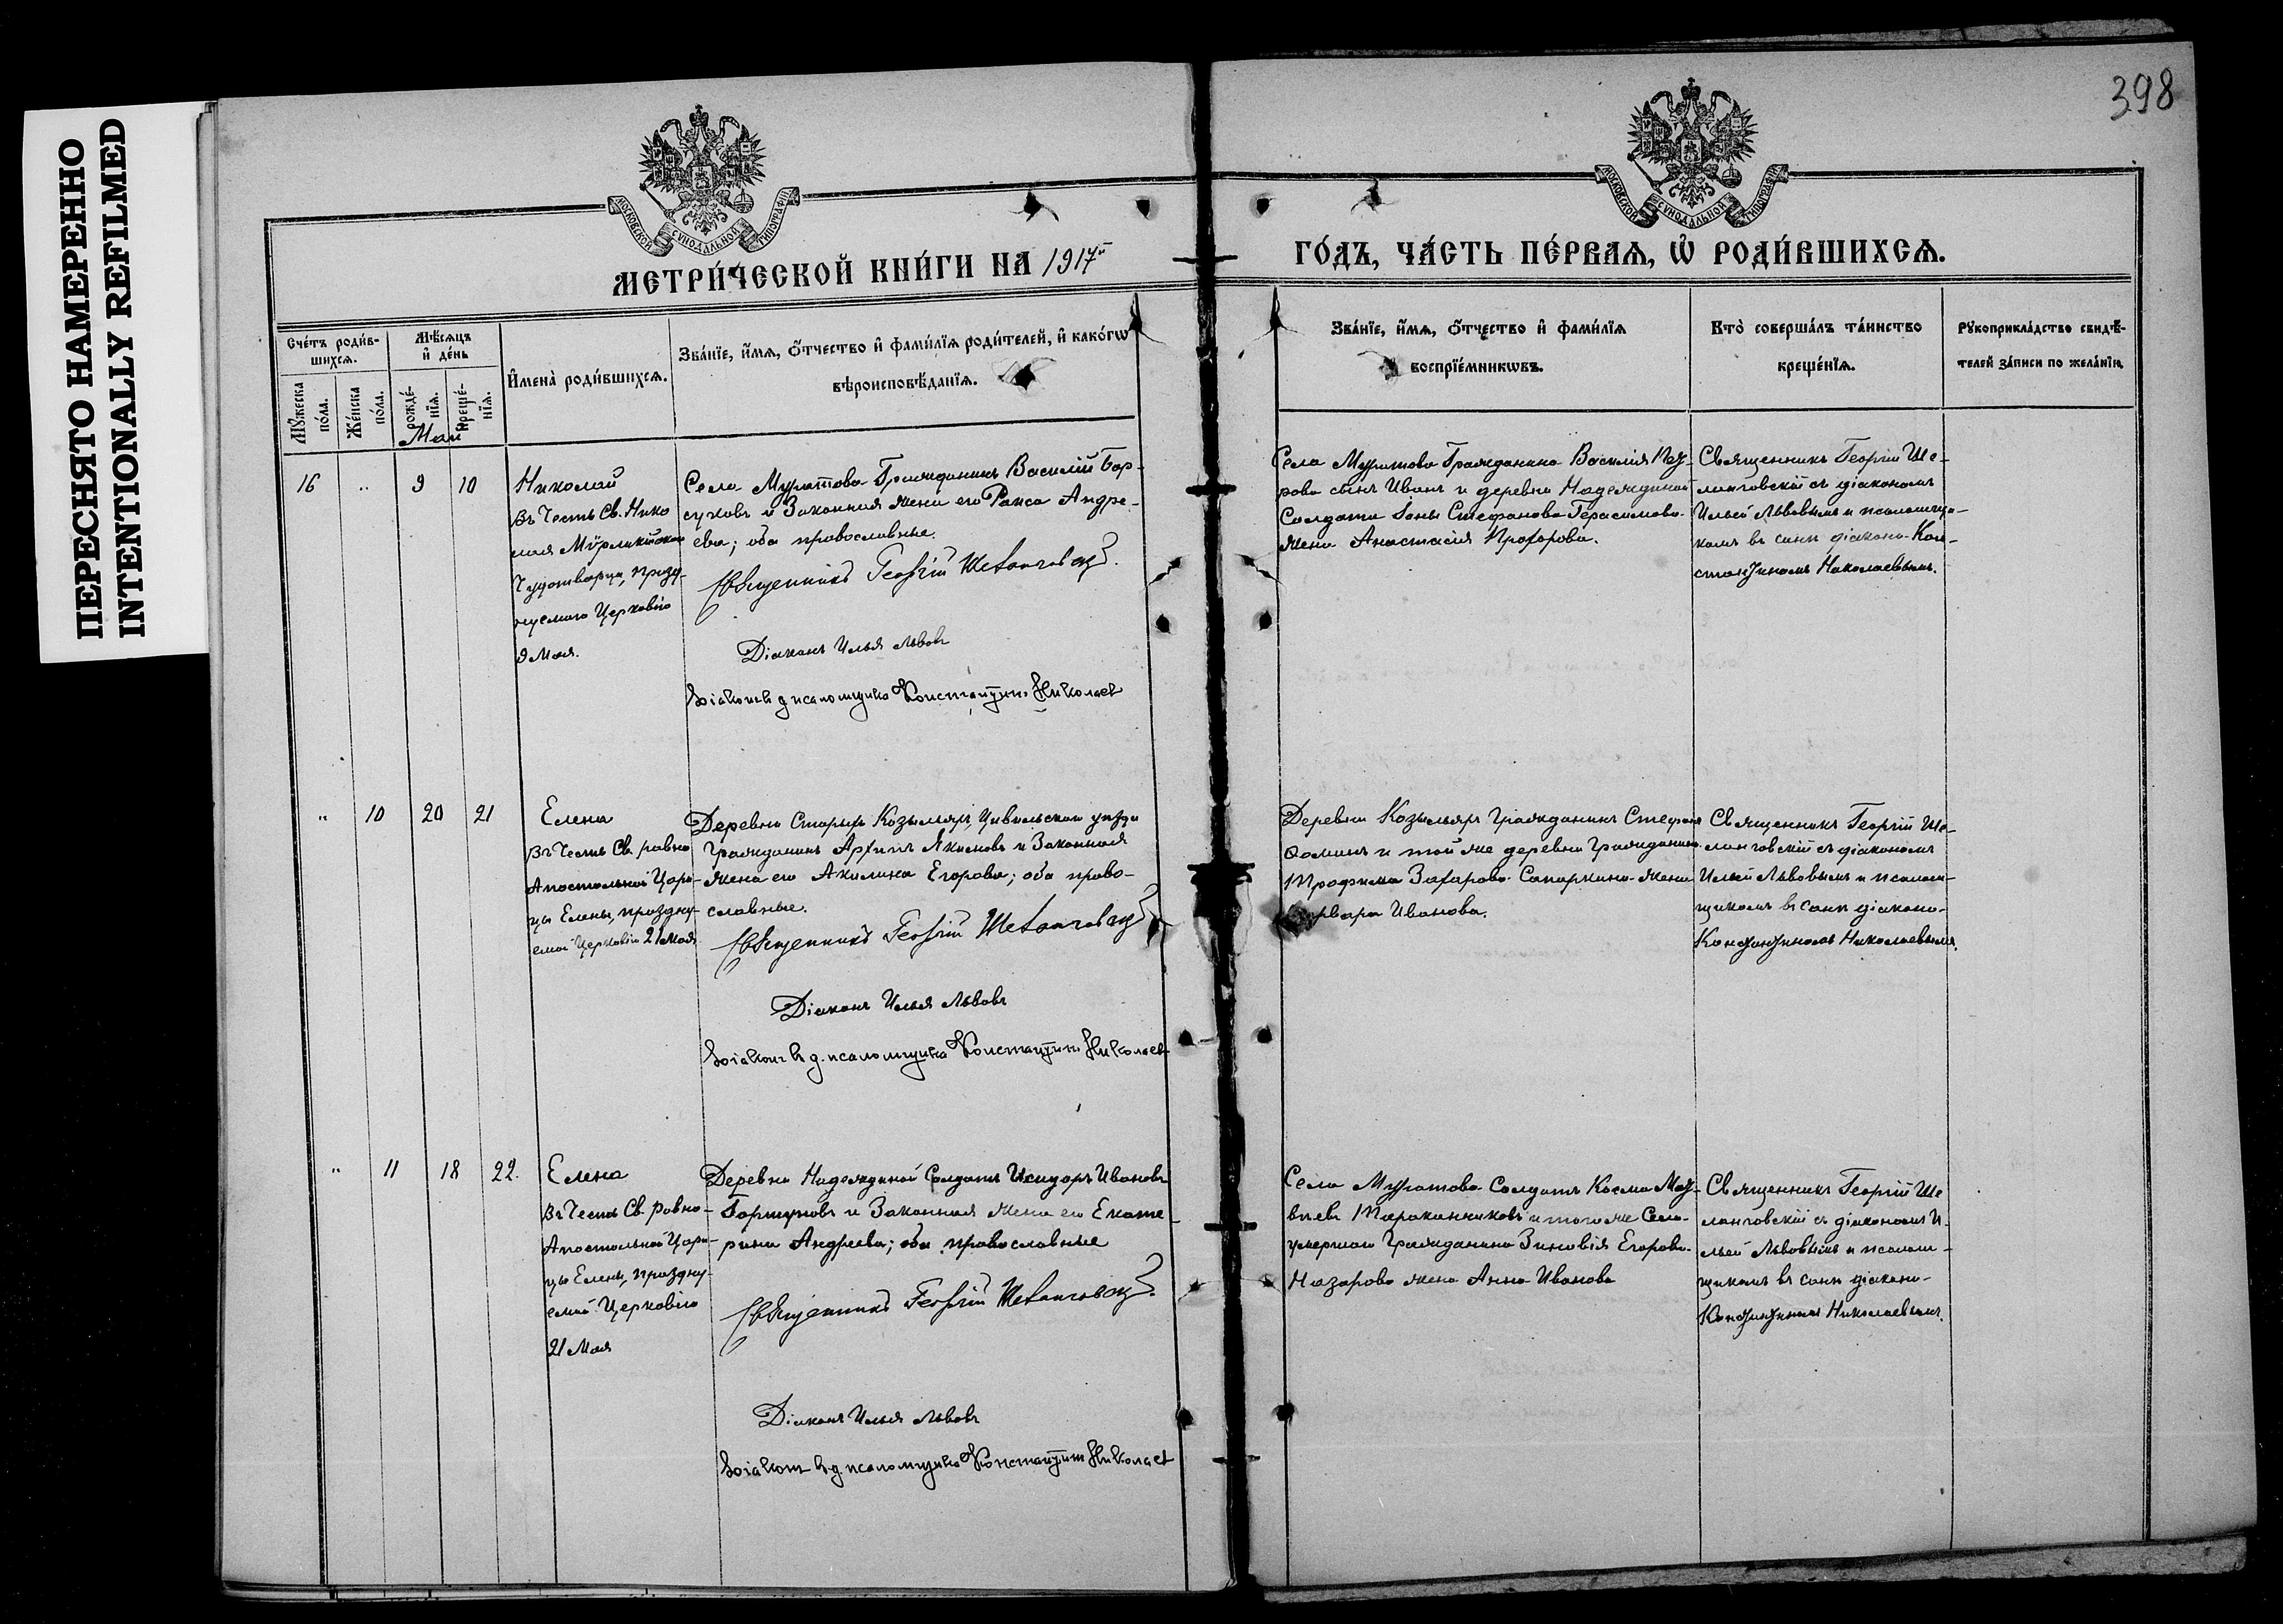 ПЕРЕСНЯТО НАМЕРЕННО
INTENTIONALLY REFILMED
398
МОСКОВСКОЙ СѴНОДАЛЬНОЙ ТИПОГРАФІИ
МОСКОВСКОЙ СѴНОДАЛЬНОЙ ТИПОГРАФІИ
МЕТРИ́ЧЕСКОЙ КНИ́ГИ НА 1917й
ГО́ДЪ, ЧА́СТЬ ПЕ́РВАѦ, Ѡ҆ РОДИ́ВШИХСѦ.
Сче́тъ роди́в-
шихсѧ.
Мꙋ́жеска
по́ла.
Же́нска
по́ла.
Мѣ́сѧцъ
и҆ де́нь
рожде́-
нїѧ.
креще́-
нїѧ.
И҆мена̀ роди́вшихсѧ.
Зва́нїе, и҆́мѧ, ѻ҆́тчество и҆ фами́лїѧ роди́телей, и҆ како́гѡ
вѣроисповѣ́данїѧ.
Зва́нїе, и҆́мѧ, ѻ҆́тчество и҆ фами́лїѧ
воспрїе́мникѡвъ.
Кто̀ соверша́лъ та́инство
креще́нїѧ.
Рꙋкоприкла́дство свидѣ́-
телей за́писи по жела́нїю.
Май
16 " 9 10
Николай
Въ Честь Св. Нико
лая Мѵрликійскаго
Чудотворца, празд-
нуемаго Церковію
9 Мая.
Села Муратова Гражданинъ Василій Бар-
суковъ и Законная жена его Раиса Андре-
ева; оба православные.
Священникъ Георгій
Діаконъ Илья Львовъ
Діаконъ псаломщика Константинъ Николаев
Села Муратова Гражданина Василія
рова сынъ Иванъ и деревни Надеждиной
Солдата Іоны Стефанова Герасимова
жена Анастасія Прохорова.
Священникъ Георгій Ше-
ланговскій съ діакономъ
Ильей Львовымъ и псаломщи-
комъ въ санѣ діакона Кон-
стантиномъ Николаевымъ.
" 10 20 21
Елена
Въ Честь Св. равно
Апостольной Цари-
цы Елены, праздну-
емой Церковію 21 мая
Деревни Старыхъ Козыльяръ, Цивильскаго уѣзда
Гражданинъ Архипъ Якимовъ и Законная
жена его Акилина Егорова; оба право-
славные.
Священникъ Георгій
Діаконъ Илья Львовъ
Діаконъ н. д. псаломщика Константинъ Николаев
Деревни Козыльяръ Гражданинъ Стефанъ
Ѳоминъ и той же деревни Гражданина
Трофима Захарова Сапаркина жена
Варвара Иванова.
Священникъ Георгій Ше-
ланговскій съ діакономъ
Ильей Львовымъ и псалом-
щикомъ въ санѣ діакона
Константиномъ Николаевымъ.
" 11 18 22.
Елена
Въ Честь Св. Равно-
Апостольной Цари-
цы Елены, праздну-
емой Церковію
21 Мая
Деревни Надеждиной Солдатъ Исидоръ Ивановъ
Горшуновъ и Законная жена его Екате-
рина Андреева; оба православные
Священникъ Георгій
Діаконъ Илья Львовъ
Діаконъ н. д. псаломщика Константинъ Николаев
Села Муратова Солдатъ Косма Мат-
вѣевъ Тараканчиковъ и того же Села
умершаго Гражданина Зиновія Егорова
Назарова жена Анна Иванова
Священникъ Георгій Ше
ланговскій съ діакономъ И-
льей Львовымъ и псалом-
щикомъ въ санѣ діакона
Константиномъ Николаевымъ.